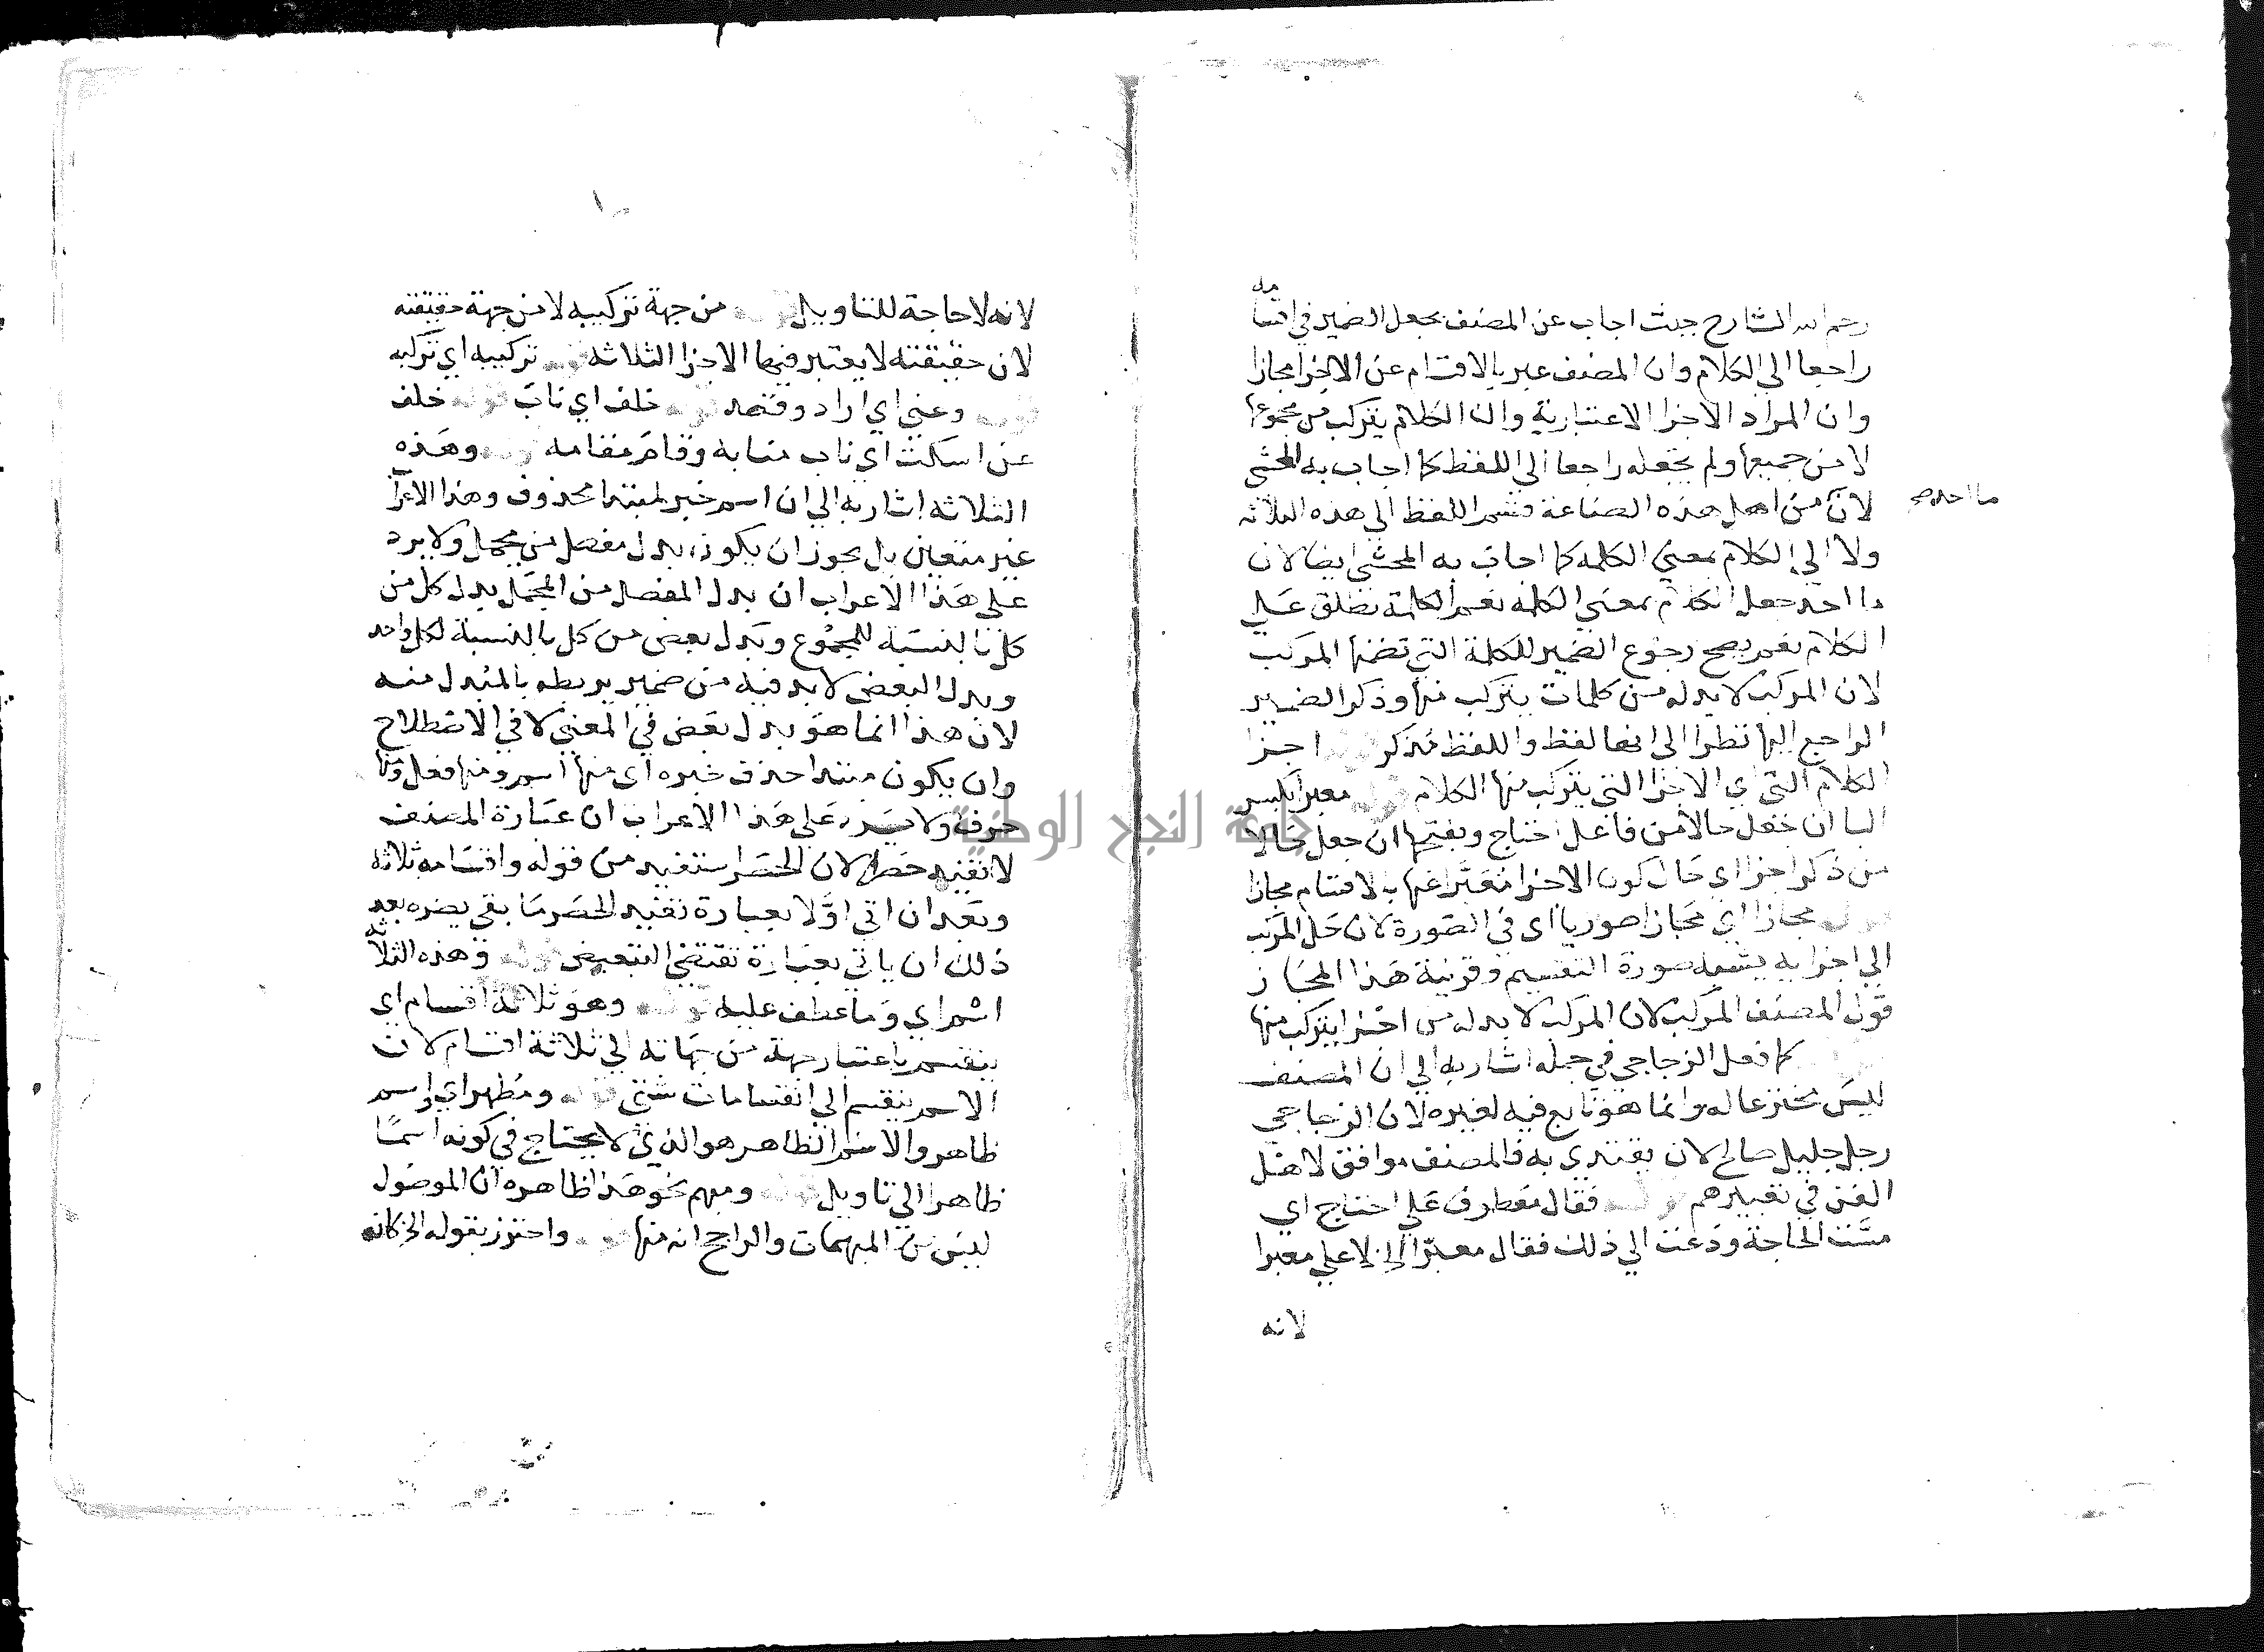 رحم الله الشارح حيث اجاب عن المصنف بجعل الضمير في اقسامه
راجعا الي الكلام وان المصنف عبر بالاقسام عن الاجزا مجازا
وان المراد الاجزا الاعتبارية وان الكلام يتركب من مجموعها
لا من جميعها ولم يجعله راجعا الي اللفظ كما اجاب به المحشي
لان من اهل هذه الصناعة قسم اللفظ الي هذه الثلاثه
ما احد
ولا الي الكلام بمعني الكلمه كما اجاب به المحشي ايضا لان
ما احد جعل الكلام بمعني الكلمه نعم الكلمة تطلق علي
الكلام نعم يصح رجوع الضمير للكلمة التي تضمنها المركب
لان المركب لا بد له من كلمات يتركب منها وذكر الضمير
الراجع اليها نظرا الي انها لفظ واللفظ مذكر اجزا
الكلام التي اي الاجزا التي يتركب منها الكلام قوله معبرا بكسر
البا ان جعل حالا من فاعل احتاج وبفتحها ان جعل حالا
من ذكر اجزا اي حال كون الاجزا معبرا عنها بالاقسام مجازا
قوله مجازا اي مجازا صوريا اي في الصورة لان حل المركب
الي اجزايه يشبه صورة التقسيم وقرينة هذا المجاز
قول المصنف المركب لان المركب لا بد له من اجزا يتركب منها
كما فعل الزجاجي في جمله اشار به الي ان المصنف
ليس مخترعا له وانما هو تابع فيه لغيره لان الزجاجي
رجل جليل صالح لان يقتدي به فالمصنف موافق لاهل
الفن في تعبيرهم قوله فقال معطوف علي احتاج اي
مست الحاجة ودعت الي ذلك فقال معبرا الخ لا علي معبرا
لانه
لانه لا حاجة للتاويل قوله من جهة تركيبه لا من جهة حقيقته
لان حقيقته لا يعتبر فيها الاجزا الثلاثه قوله تركيبه اي تركبه
قوله وعني اي اراد وقصد قوله خلف اي ناب قوله خلف
عن اسكت اي ناب منابه وقام مقامه قوله وهذه
الثلاثه اشار به الي ان اسم خبر لمبتدا محذوف وهذا الاعراب
غير متعين بل يجوز ان يكون بدل مفصل من مجمل ولا يرد
علي هذا الاعراب ان بدل المفصل من المجمل بدل كل من
كل بالنسبة للمجموع وبدل بعض من كل بالنسبة لكل واحد
وبدل البعض لا بد فيه من ضمير يربطه بالمبدل منه
لان هذا انما هو بدل بعض في المعني لا في الاصطلاح
وان يكون مبتدا حذف خبره اي منها اسم ومنها فعل ومنها
حرف ولا يرد علي هذا الاعراب ان عبارة المصنف
لا تفيد حصرا لان الحصر استفيد من قوله واقسامه ثلاثة
وبعد ان اتي اولا بعبارة تفيد الحصر ما بقي يضره بعد
ذلك ان ياتي بعبارة تقتضي التبعيض قوله وهذه الثلاثة
اسم اي وما عطف عليه قوله وهو ثلاثة اقسام اي
ينقسم باعتبار جهة من جهاته الي ثلاثة اقسام لان
الاسم ينقسم الي انقسامات شتي قوله ومظهر اي اسم
ظاهر والاسم الظاهر هو الذي لا يحتاج في كونه اسما
ظاهرا الي تاويل قوله ومبهم نحو هذا ظاهره ان الموصول
ليس من المبهمات والراجح انه منها قوله واحترز بقوله الخ كانه
جامعة النجاح الوطنية